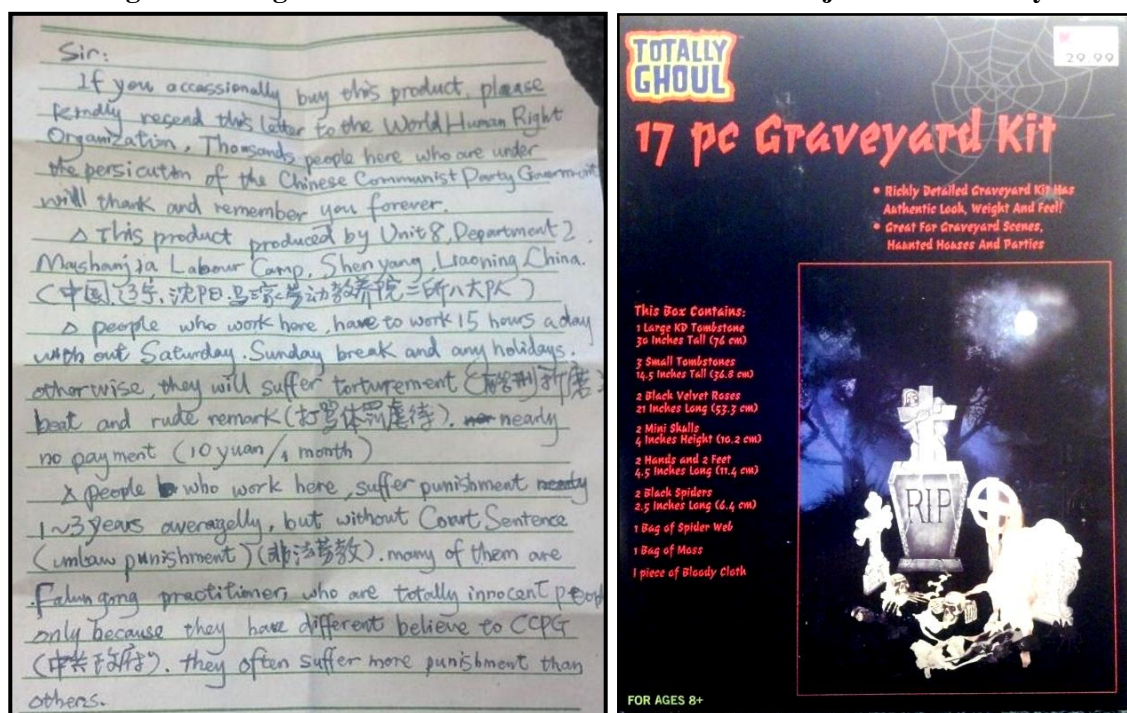 Sir:
If you occassionally buy this product, please
kindly resend this letter to the World Human Right
Organization, Thousands people here who are under
the persicution of the Chinese Communist Party Goverment
will thank and remember you forever.
△ This product produced by Unit 8, Department 2.
Mashanjia Labour Camp, Shenyang, Liaoning China.
(中国, 辽宁, 沈阳 马三家劳动教养院二所八大队)
△ people who work here, have to work 15 hours a day
with out Saturday. Sunday break and any holidays.
otherwise, they will suffer torturement (酷刑折磨
beat and rude remark (打骂体罚虐待). nearly
no payment (10 yuan/1 month)
△ people who work here, suffer punishment
1~3 years averagelly, but without Court Sentence
(unlaw punishment) (非法劳教). many of them are
Falun gong practitioner, who are totally innocent people
only because they have different believe to CCPG
(中共政府). they often suffer more punishment than
others.
TOTALLY
GHOUL
29.99
17 pc Graveyard Kit
• Richly Detailed Graveyard Kit Has
Authentic Look, Weight And Feel!
• Great For Graveyard Scenes,
Haunted Houses And Parties
This Box Contains:
1 Large KD Tombstone
30 Inches Tall (76 cm)
3 Small Tombstones
14.5 Inches Tall (36.8 cm)
2 Black Velvet Roses
21 Inches Long (53.3 cm)
2 Mini Skulls
4 Inches Height (10.2 cm)
2 Hands and 2 Feet
4.5 Inches Long (11.4 cm)
2 Black Spiders
2.5 Inches Long (6.4 cm)
1 Bag of Spider Web
1 Bag of Moss
1 piece of Bloody Cloth
RIP
FOR AGES 8+